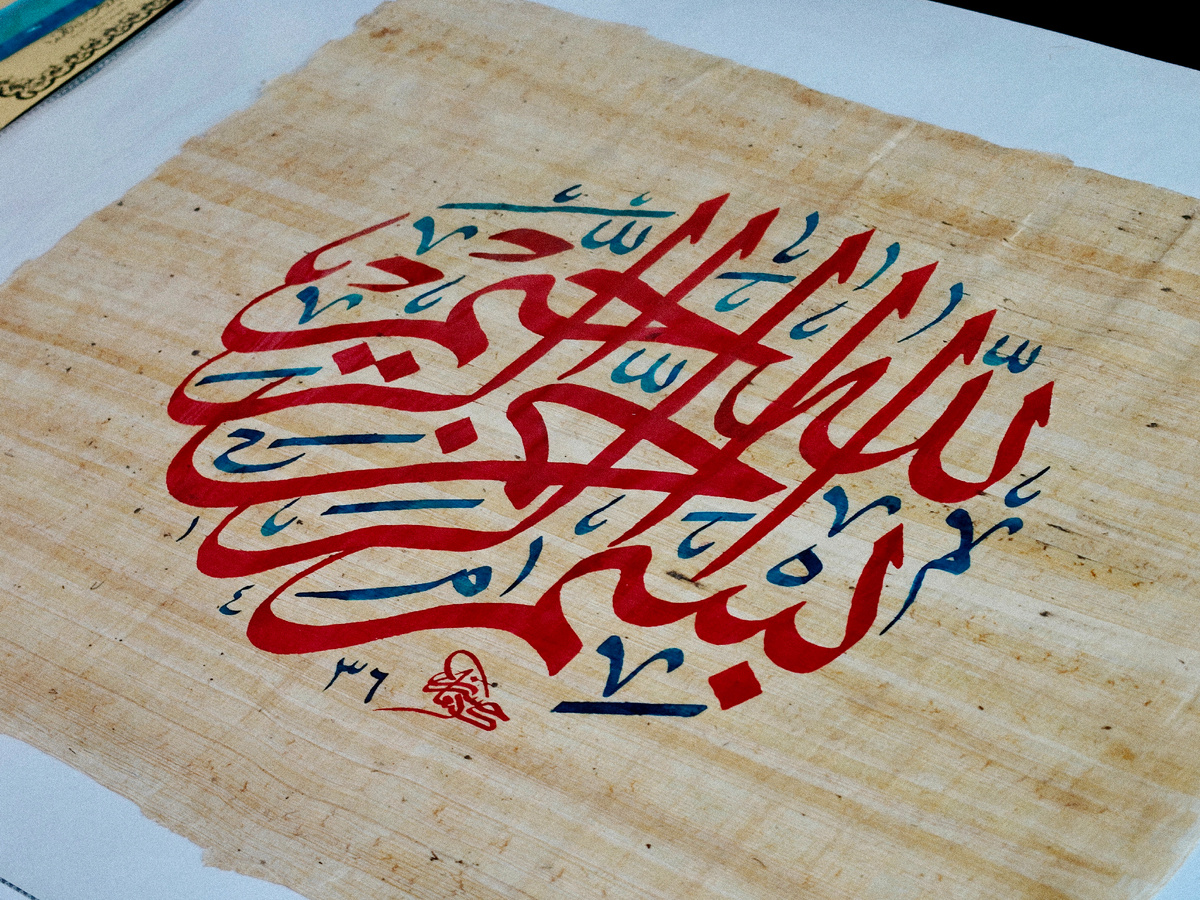 بسم الله الرحمن الرحيم
١٤٣٦